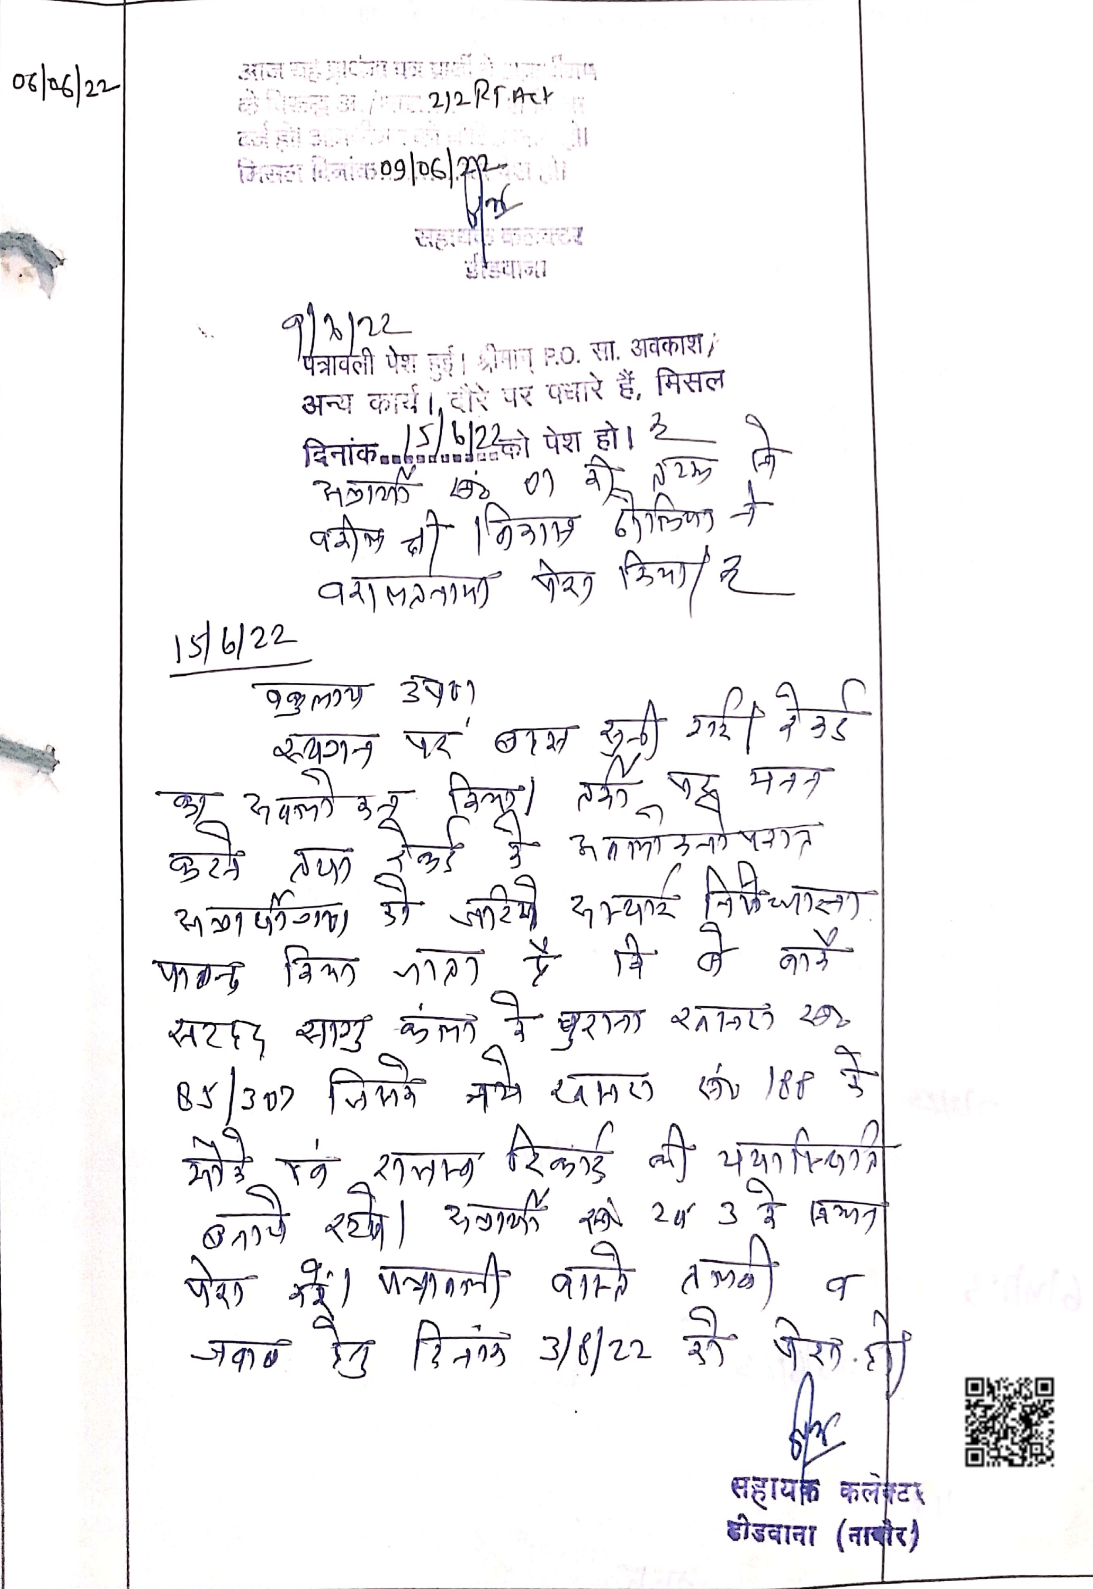 06/06/22
आज यह प्रार्थना पत्र प्रार्थी ने
के विरुद्ध 212 RT Act
दर्ज हो
मिसल दिनांक 09/06/22 पेश हो।
सहायक कलेक्टर
डीडवाना
9/6/22
पत्रावली पेश हुई। श्रीमान् P.O. सा. अवकाश/
अन्य कार्य/दौरे पर पधारे हैं, मिसल
दिनांक 15/6/22 को पेश हो।
अप्रार्थी सं० 01 की तरफ से
वकील श्री
वकालतनामा पेश किया।
15/6/22
वकुलाय उप०।
स्थगन पर बहस सुनी गई। रेकर्ड
का अवलोकन किया। तर्कों पर मनन
करने तथा रेकर्ड के अवलोकनोपरान्त
अप्रार्थीगण को जरिये अस्थाई निषेधाज्ञा
पाबन्द किया जाता है कि वे वाके
सरहद सागु कंला के पुराना खसरा सं०
85/307 जिसके नये खसरा सं० 188 के
मौके एवं राजस्व रिकार्ड की यथास्थिति
बनाये रखें। अप्रार्थी सं० 2 व 3 के
पेश करें। पत्रावली वास्ते तलबी व
जवाब हेतु दिनांक 3/8/22 को पेश हो।
सहायक कलेक्टर
डीडवाना (नागौर)